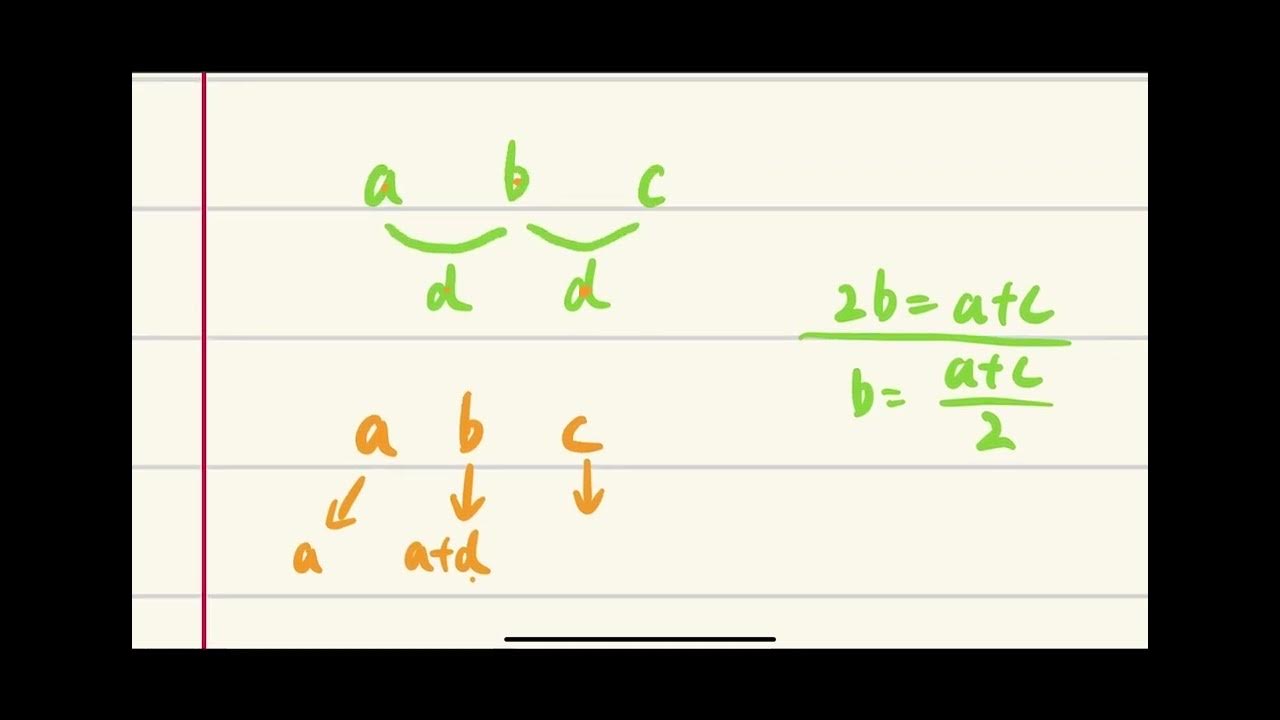 a b c
d d
2b = a+c
b = \frac{a+c}{2}
a b c
a a+d